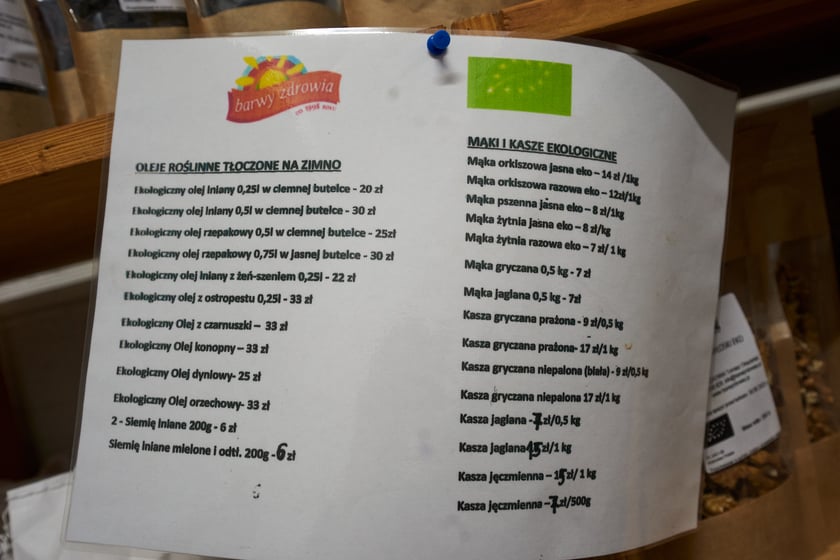 barwy zdrowia
od 1998 roku
OLEJE ROŚLINNE TŁOCZONE NA ZIMNO
Ekologiczny olej lniany 0,25l w ciemnej butelce - 20 zł
Ekologiczny olej lniany 0,5l w ciemnej butelce - 30 zł
Ekologiczny olej rzepakowy 0,5l w ciemnej butelce - 25zł
Ekologiczny olej rzepakowy 0,75l w jasnej butelce - 30 zł
Ekologiczny olej lniany z żeń-szeniem 0,25l - 22 zł
Ekologiczny olej z ostropestu 0,25l - 33 zł
Ekologiczny Olej z czarnuszki – 33 zł
Ekologiczny Olej konopny – 33 zł
Ekologiczny Olej dyniowy- 25 zł
Ekologiczny Olej orzechowy- 33 zł
2 - Siemię lniane 200g - 6 zł
Siemię lniane mielone i odtł. 200g -6 zł
MĄKI I KASZE EKOLOGICZNE
Mąka orkiszowa jasna eko – 14 zł /1kg
Mąka orkiszowa razowa eko – 12zł/1kg
Mąka pszenna jasna eko – 8 zł/1kg
Mąka żytnia jasna eko – 8 zł/kg
Mąka żytnia razowa eko – 7 zł/ 1 kg
Mąka gryczana 0,5 kg - 7 zł
Mąka jaglana 0,5 kg - 7zł
Kasza gryczana prażona - 9 zł/0,5 kg
Kasza gryczana prażona- 17 zł/1 kg
Kasza gryczana niepalona (biała) - 9 zł/0,5 kg
Kasza gryczana niepalona 17 zł/1 kg
Kasza jaglana -7zł/0,5 kg
Kasza jaglana 15zł/1 kg
Kasza jęczmienna – 15zł/ 1 kg
Kasza jęczmienna –7zł/500g